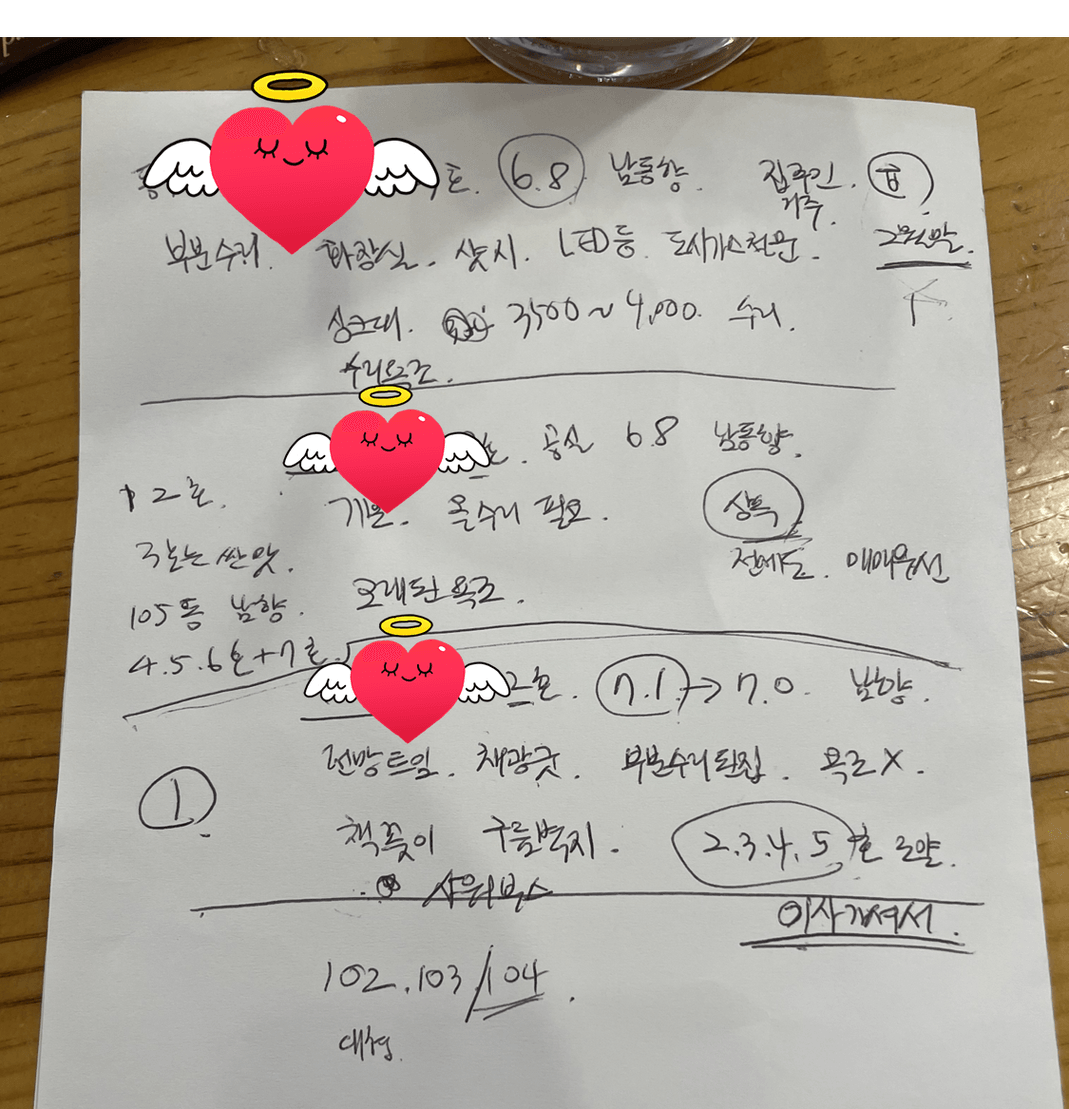 호. 6.8 남동향. 집주인. 거주.
부분수리. 화장실. 샷시. LED등. 도시가스전문.
싱크대. 3500~4,000. 수리.
수리욕조.
호. 공실 68 남동향.
12호.
기본. 올수리 필요. 상특
전에도. 매매우선
105동 남향. 오래된욕조.
4.5.6호+7호.
2호. 7.1 → 7.0. 남향.
전망트임. 채광굿. 부분수리된집. 욕조X.
1
책꽂이 구름벽지. 2.3.4.5호 로얄.
샤워박스
이사가셔서.
102.103/104.
대형.